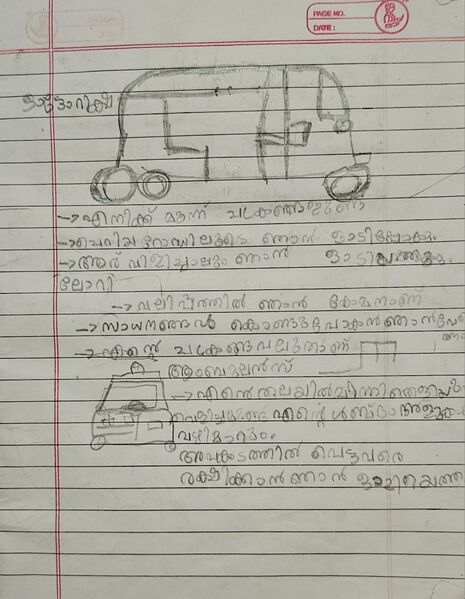 PAGE NO.
DATE :
ഓട്ടോറിക്ഷ
→ എനിക്ക് മൂന്ന് ചക്രങ്ങളുണ്ട്
→ ചെറിയ റോഡിലൂടെ ഞാൻ ഓടിപ്പോകും
→ ആര് വിളിച്ചാലും ഞാൻ ഓടിയെത്തും
ലോറി
→ വലിപ്പത്തിൽ ഞാൻ കേമനാണ്
→ സാധനങ്ങൾ കൊണ്ടുപോകാൻ ഞാൻ
→ എന്റെ ചക്രങ്ങൾ വലുതാണ്
ആംബുലൻസ്
→ എന്റെ തലയിൽ മിന്നിതെളിയും
വെളിച്ചമുണ്ട് എന്റെ ശബ്ദം
വഴിമാറും
അപകടത്തിൽ പെട്ടവരെ
രക്ഷിക്കാൻ ഞാൻ ഓടിയെത്തും